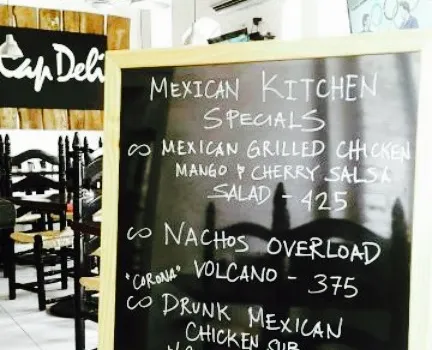 Cap Deli
MEXICAN KITCHEN
SPECIALS
∞ MEXICAN GRILLED CHICKEN
MANGO & CHERRY SALSA
SALAD - 425
∞ NACHOS OVERLOAD
VOLCANO - 375
"CORONA"
∞ DRUNK MEXICAN
CHICKEN SUB